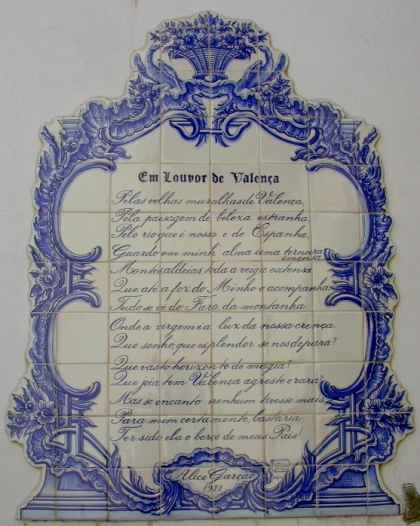 Em Louvor de Valença
Pelas velhas muralhas de Valença,
Pela paisagem de beleza estranha
Pelo rio que é nosso e de Espanha,
Guardo em minh' alma uma ternura
emensa
Montes, aldeias, toda a veiga extensa
Que até a foz do Minho o acompanha
Tudo se vê do Faro, da montanha
Onde a virgem é a luz da nossa crença
Que sonho, que esplendor se nos depara?
Que vasto horizonte de magia?
Que joia tem Valença agreste e rara?
Mas se encanto nenhum tivesse mais
Para mem certamente, bastaria
Ter sido ela o berço de meus Pais
Alice Garção
1928